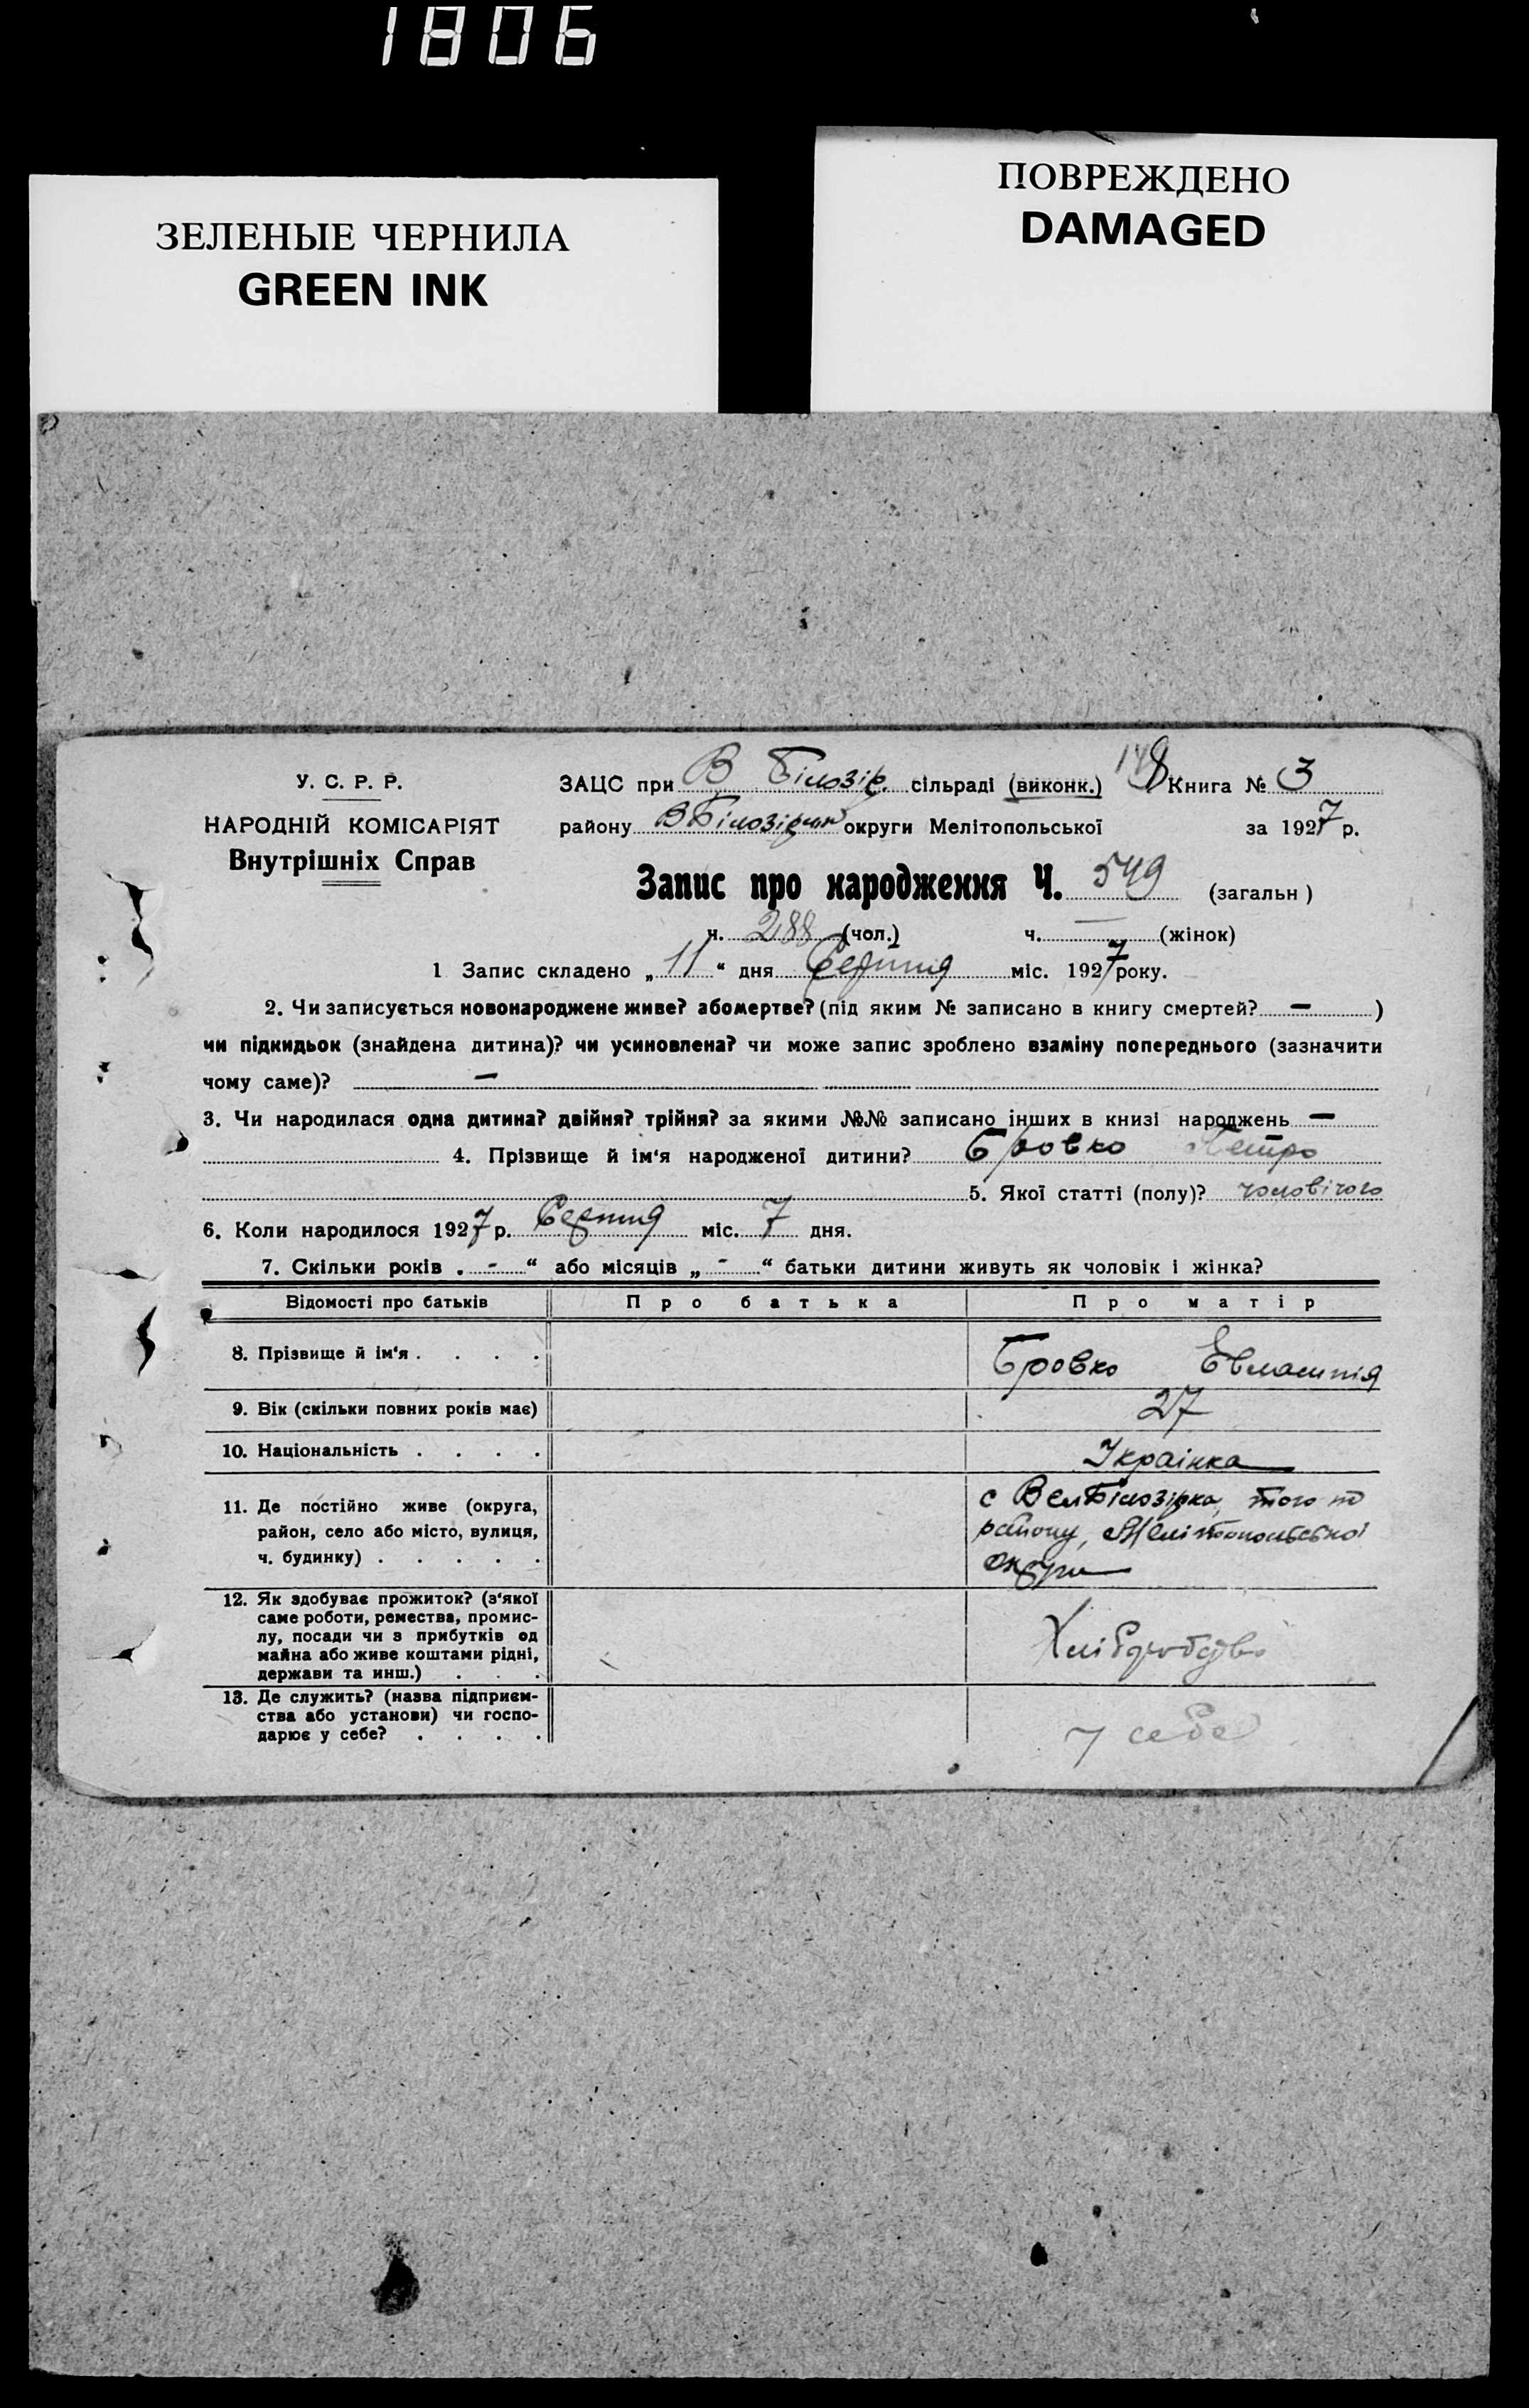 1806
ЗЕЛЕНЫЕ ЧЕРНИЛА
GREEN INK
ПОВРЕЖДЕНО
DAMAGED
У. С. Р. Р.
НАРОДНІЙ КОМІСАРІЯТ
Внутрішніх Справ
ЗАЦС при В Білозір. сільраді (виконк.) 148 Книга № 3
району ВБілозірск округи Мелітопольської за 1927 р.
Запис про народження Ч. 549 (загальн)
ч. 288 (чол.) ч. — (жінок)
1 Запис складено „11“ дня Серпня міс. 1927 року.
2. Чи записується новонароджене живе? або мертве? (під яким № записано в книгу смертей? — )
чи підкидьок (знайдена дитина)? чи усиновлена? чи може запис зроблено взаміну попереднього (зазначити
чому саме)? —
3. Чи народилася одна дитина? двійня? трійня? за якими №№ записано інших в книзі народжень —
4. Прізвище й ім‘я народженої дитини? Бровко Петро
5. Якої статті (полу)? чоловічого
6. Коли народилося 1927 р. Серпня міс. 7 дня.
7. Скільки років . - “ або місяців „ - “ батьки дитини живуть як чоловік і жінка?
Відомості про батьків Про батька Про матір
8. Прізвище й ім‘я . . . . . Бровко Евлампія
9. Вік (скільки повних років має) 27
10. Національність . . . . Украінка
11. Де постійно живе (округа,
район, село або місто, вулиця,
ч. будинку) . . . . .
с ВелБілозірка, того ж
району, Мелітопольськоі
округи
12. Як здобуває прожиток? (з‘якої
саме роботи, ремества, промис-
лу, посади чи з прибутків од
майна або живе коштами рідні,
держави та инш.) . . .
Хліборобство
13. Де служить? (назва підприєм-
ства або установи) чи госпо-
дарює у себе? . . . .
у себе